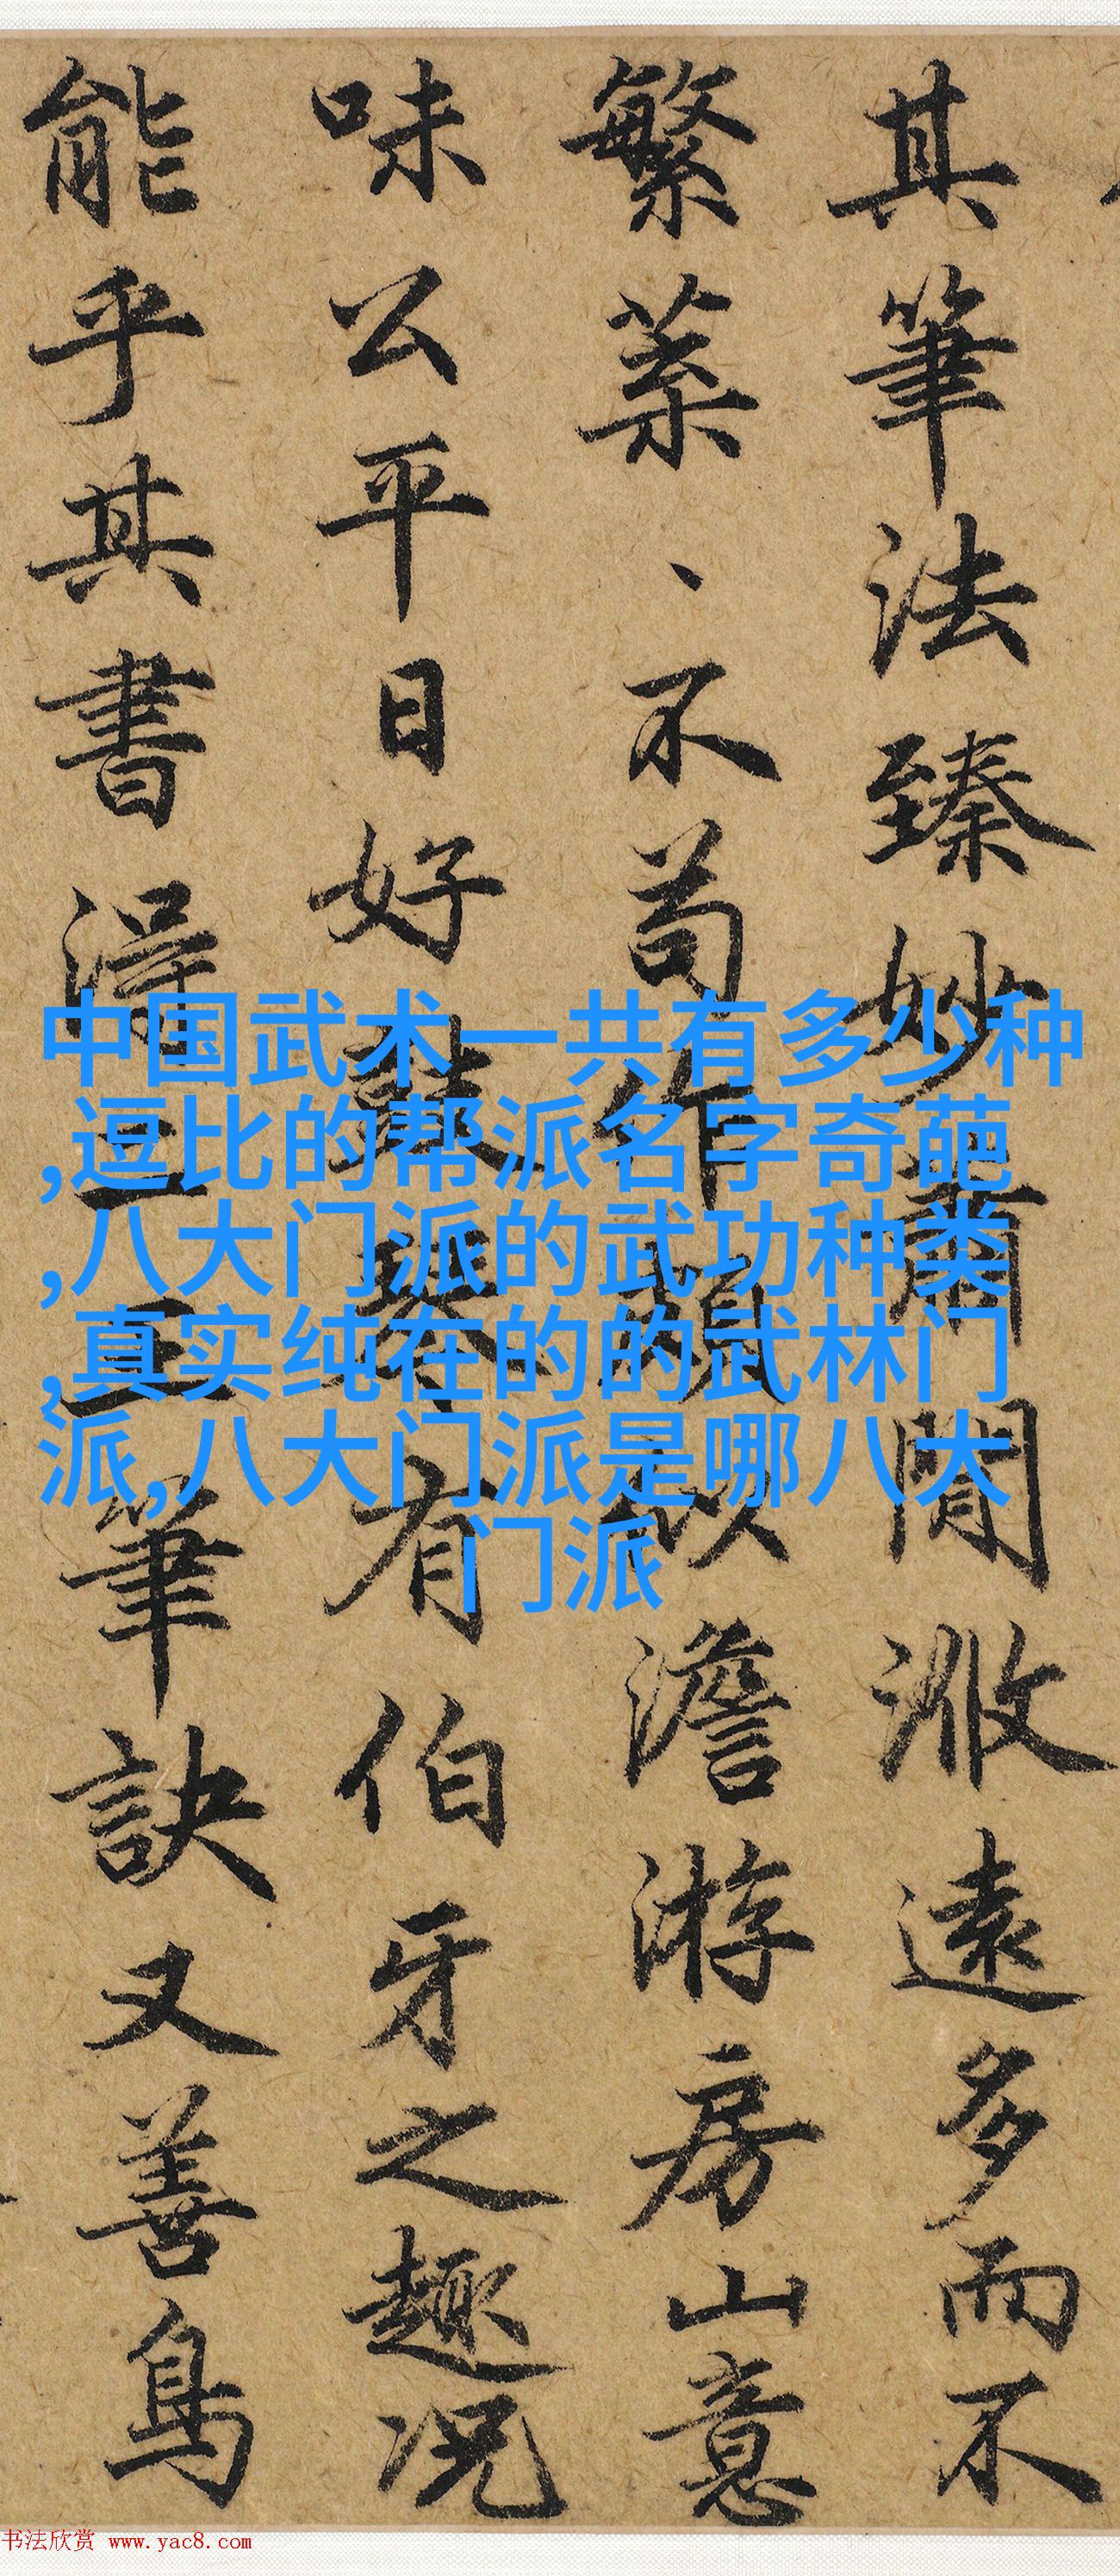 其筆法臻妙蕭閒遠多而不
繁葉、不苟作頗似澹游房山意
味公平日好鼓琴有伯牙之趣況
能乎其書得二王筆訣又善鳥
中国武术一共有多少种
,逗比的帮派名字奇葩
,八大门派的武功种类
,真实纯在的的武林门
派,八大门派是哪八大
门派
书法欣赏 www.yac8.com